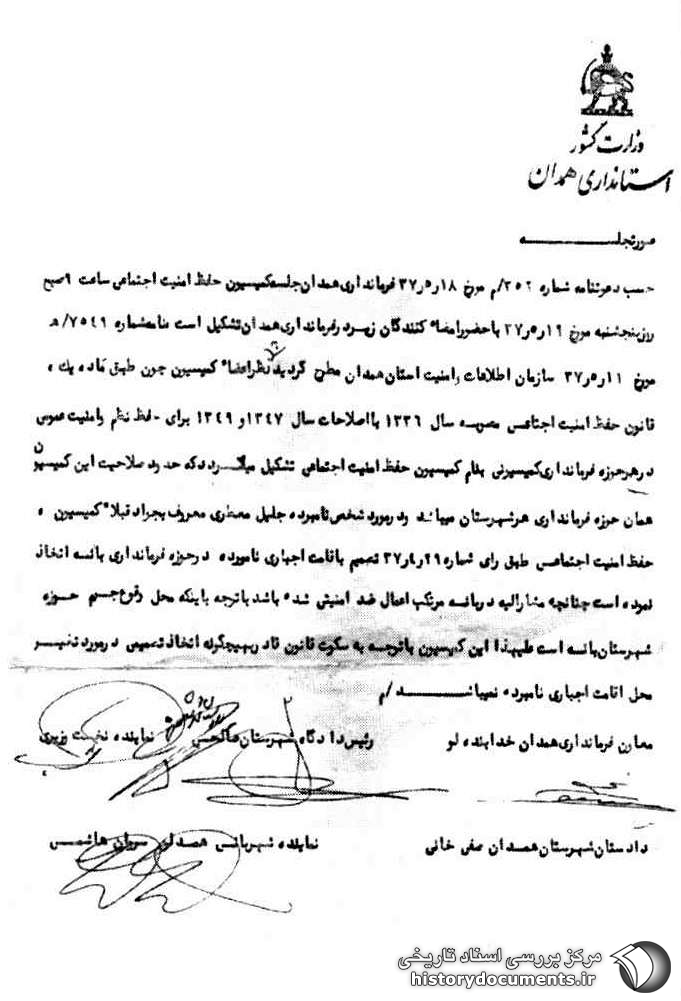 وزارت کشور
استانداری همدان
صورتجلسه
حسب دعوتنامه شماره ۲۵۲/م مورخ ۱۸ر۵ر۳۷ فرمانداری همدان جلسه کمیسیون حفظ امنیت اجتماعی ساعت ۹ صبح
روز پنجشنبه مورخ ۱۹ر۵ر۳۷ با حضور امضاء کنندگان زیر در فرمانداری همدان تشکیل است نامه شماره ۷۵۴۹/هـ
مورخ ۱۱ر۵ر۳۷ سازمان اطلاعات و امنیت استان همدان مطرح گردید نظر اعضاء کمیسیون چون طبق ماده یک
قانون حفظ امنیت اجتماعی مصوبه سال ۱۳۳۶ با اصلاحات سال ۱۳۴۷ و ۱۳۴۹ برای حفظ نظم و امنیت عمومی
در هر حوزه فرمانداری کمیسیونی بنام کمیسیون حفظ امنیت اجتماعی تشکیل میگردد که حدود صلاحیت این کمیسیون
همان حوزه فرمانداری هر شهرستان میباشد و در مورد شخص نامبرده جلیل معطری معروف بجراد قبلا" کمیسیون
حفظ امنیت اجتماعی طبق رای شماره ۲۹ر۴ر۳۷ تصمیم باقامت اجباری نامبرده در حوزه فرمانداری بانه اتخاذ
نموده است چنانچه مشارالیه در بانه مرتکب اعمال ضد امنیتی شده باشد با توجه باینکه محل وقوع جرم حوزه
شهرستان بانه است علیهذا این کمیسیون با توجه به سکوت قانون قادر بهیچگونه اتخاذ تصمیمی در مورد تغییر
محل اقامت اجباری نامبرده نمیباشد /م
معاون فرمانداری همدان خدابنده لو رئیس دادگاه شهرستان صالحی نماینده نخست وزیری
دادستان شهرستان همدان صفی خانی نماینده شهربانی همدان سروان هاشمی
مرکز بررسی اسناد تاریخی
historydocuments.ir